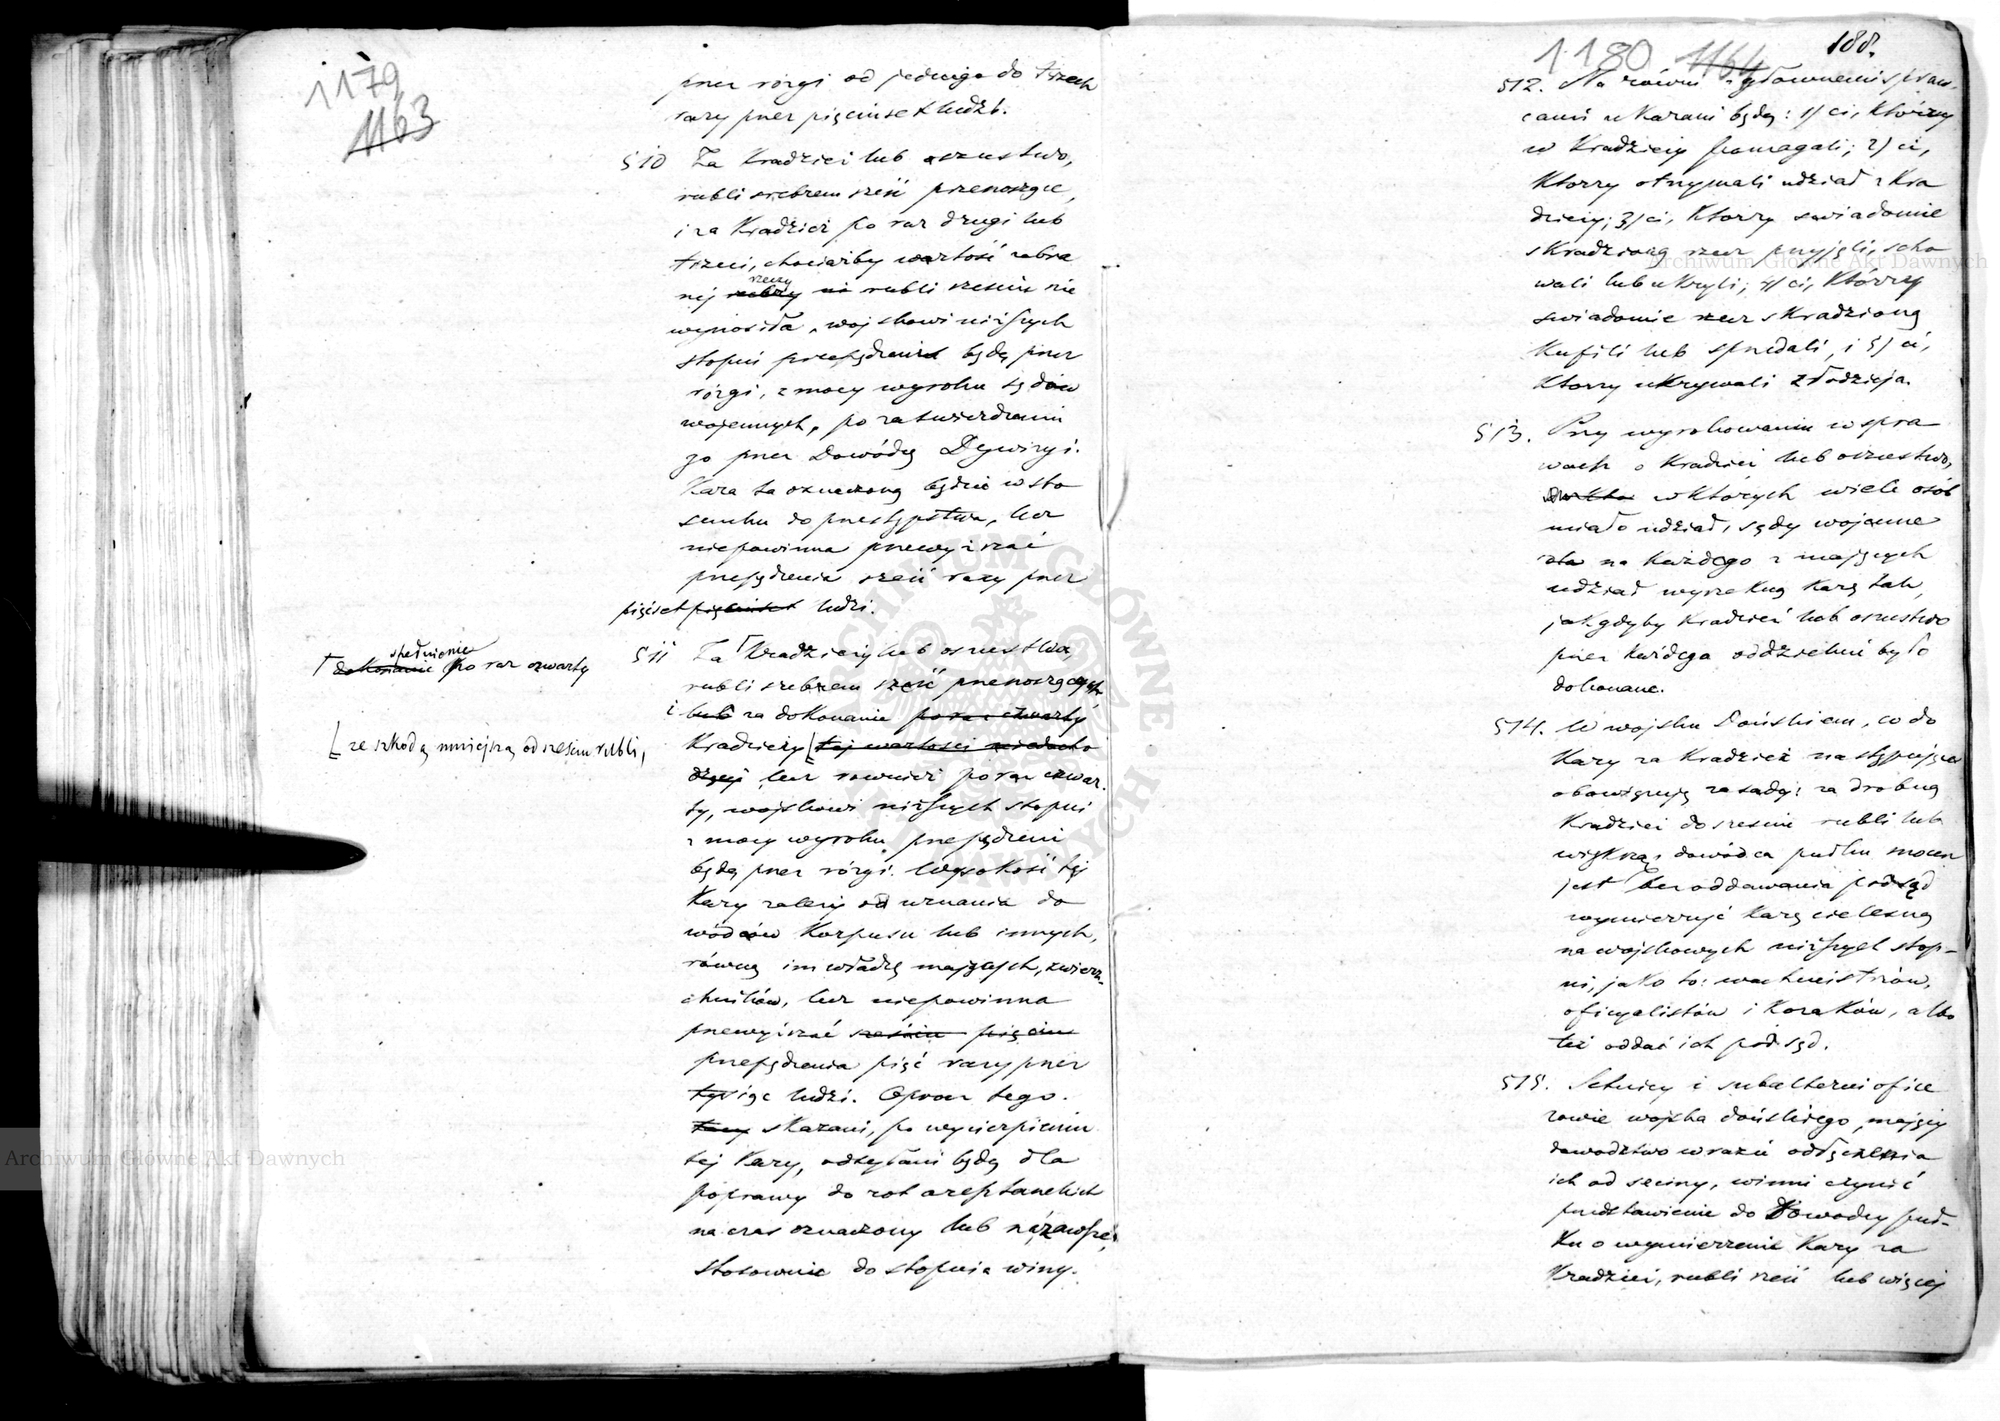 1179
1163
przez rózgi od jednego do trzech
razy przez pięciuset ludzi.
510 Za kradzież lub oszustwo,
rubli srebrem sześć przenoszące,
i za kradzież po raz drugi lub
trzeci, chociażby wartość zabra
nej rzeczy rubli sześciu nie
wynosiła, wojskowi niższych
stopni przepędzeni będą przez
rózgi, z mocy wyroku sądów
wojennych, po zatwierdzeniu
go przez Dowódcę Dywizyi.
Kara ta oznaczoną będzie w sto
sunku do przestępstwa, lecz
niepowinna przewyższać
przepędzenia sześć razy przez
pięćset pięciuset ludzi.
511 Za kradzieży lub oszustwa,
spełnienie
dokonanie po raz czwarty
rubli srebrem sześć przenoszących
i lub za dokonanie po raz czwarty
kradzieży tej wartości
ze szkodą mniejszą od sześciu rubli,
lecz również po raz czwar
ty, wojskowi niższych stopni
z mocy wyroku przepędzeni
będą przez rózgi. Wysokość tej
kary zależy od uznania do
wódców Korpusu lub innych,
równą im władzę mających, zwierz-
chników, lecz niepowinna
przewyższać sześciu pięciu
przepędzenia pięć razy przez
tysiąc ludzi. Oprócz tego.
skazani, po wycierpieniu
tej kary, odsyłani będą dla
poprawy do rot aresztanckich
na czas oznaczony lub na zawsze,
stosownie do stopnia winy.
1180 1164 188.
512. Na równi z głównemi spraw-
cami ukarani będą: 1) ci, którzy
w kradzieży pomagali; 2) ci,
którzy otrzymali udział z kra
dzieży; 3) ci, którzy świadomie
skradzioną rzecz przyjęli, scho
wali lub ukryli; 4) ci, którzy
świadomie rzecz skradzioną
kupili lub sprzedali, i 5) ci,
którzy ukrywali złodzieja.
513. Przy wyrokowaniu w spra
wach o kradzież lub oszustwo,
w których wiele osób
miało udział, sądy wojenne
na każdego z mających
udział wyrzekną karę tak,
jak gdyby kradzież lub oszustwo
przez każdego oddzielnie było
dokonane.
514. W wojsku Dońskiem, co do
kary za kradzież następujące
obowiązują zasady: za drobną
kradzież do sześciu rubli lub
większą, dowódca pułku mocen
jest bez oddawania pod sąd
wymierzyć karę cielesną
na wojskowych niższych stop-
ni, jako to: wachmistrzów,
oficyalistów i kozaków, albo
też oddać ich pod sąd.
515. Setnicy i subalterni ofice
rowie wojska dońskiego, mający
dowództwo w razie odłączenia
ich od seciny, winni czynić
przedstawienie do Dowódcy puł-
ku o wymierzenie kary za
kradzież, rubli sześć lub więcej
Archiwum Główne Akt Dawnych
Archiwum Główne Akt Dawnych
ARCHIWUM GŁÓWNE AKT DAWNYCH